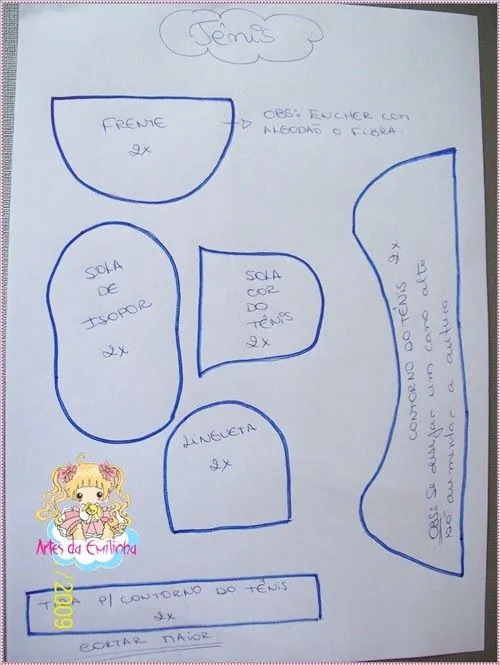 Tênis
FRENTE
2x
OBS: ENCHER COM
ALGODÃO O FIBRA.
SOLA
DE
ISOPOR
2x
SOLA
COR
DO
TÊNIS
2x
CONTORNO DO TÊNIS 2x
OBS: Se desejar um cano alto
só aumentar a autura
LINGUETA
2x
Artes da Emilinha
/2009
TIRA P/ CONTORNO DO TÊNIS
2x
CORTAR MAIOR